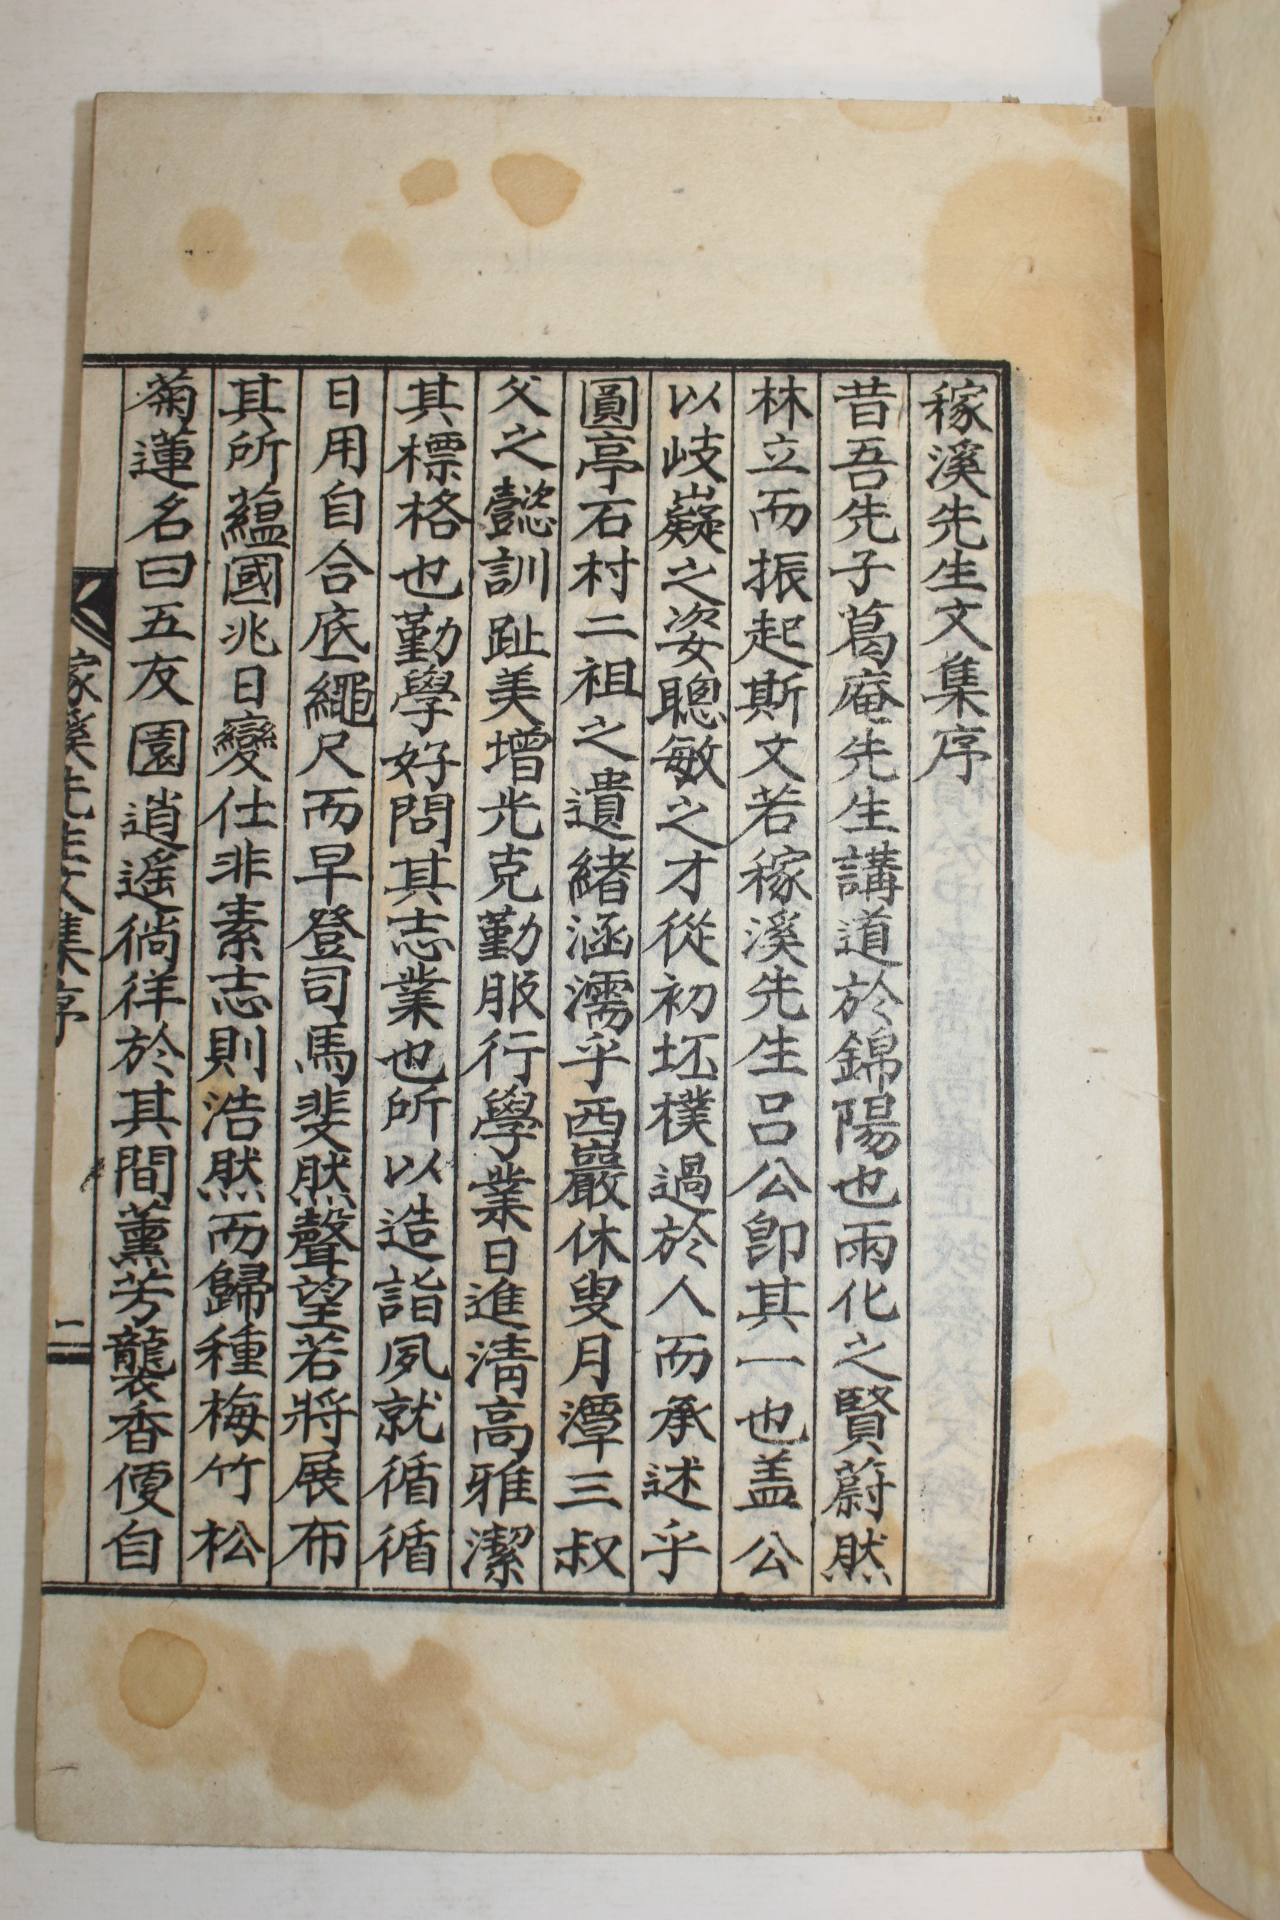 稼溪先生文集序
昔吾先子葛庵先生講道於錦陽也雨化之賢蔚然
林立而振起斯文若稼溪先生呂公卽其一也盖公
以岐嶷之姿聰敏之才從初坯樸過於人而承述乎
圓亭石村二祖之遺緖涵濡乎西巖休叟月潭三叔
父之懿訓趾美增光克勤服行學業日進淸高雅潔
其標格也勤學好問其志業也所以造詣夙就循循
日用自合底繩尺而早登司馬斐然聲望若將展布
其所蘊國兆日變仕非素志則浩然而歸種梅竹松
菊蓮名曰五友園逍遙徜徉於其間薰芳襲香便自
稼溪先生文集序
一